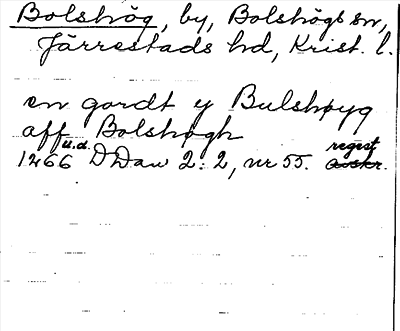 Bolshög, by, Bolshögs sn,
Järrestads hd, Krist. l.
en gardt y Bulshøyg
aff Bolshøgh
1266 u.d. DDan 2:2, nr 55. regest avskr.